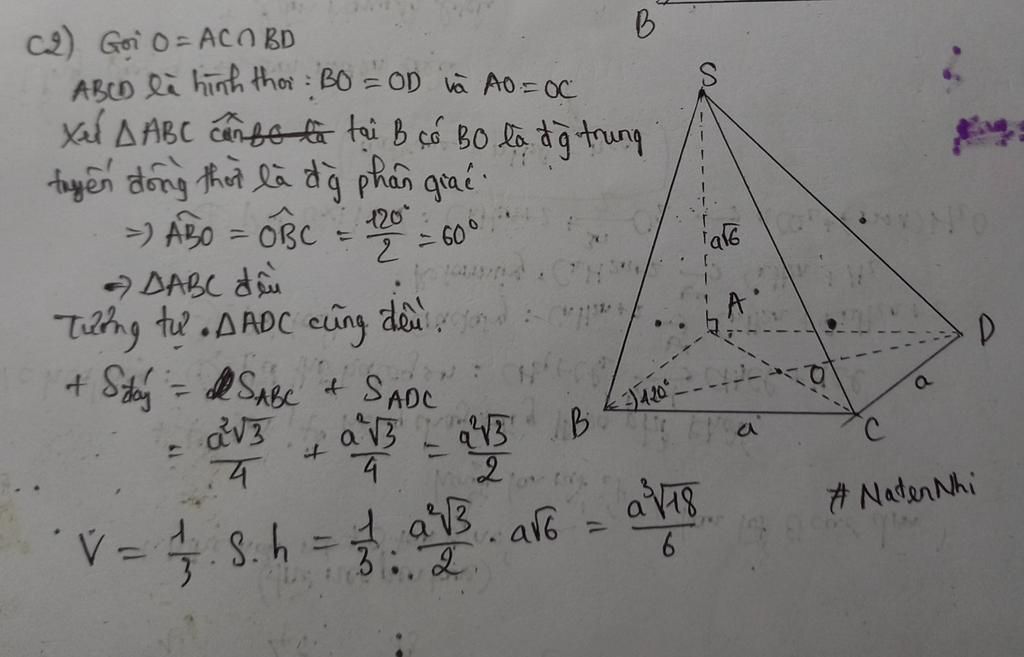 B
C2) Gọi O = AC ∩ BD
ABCD là hình thoi : BO = OD và AO = OC
Xét △ABC cân tại B có BO là đg trung
tuyến đồng thời là đg phân giác.
=> ABO^ = OBC^ = 120°/2 = 60°
=> △ABC đều
Tương tự . △ADC cũng đều.
+ Sđáy = SABC + SADC
= a²√3/4 + a²√3/4 = a²√3/2
V = 1/3 . S.h = 1/3 . a²√3/2 . a√6 = a³√18/6
S
a√6
A
D
O
120°
B
a
C
a
# NatenNhi